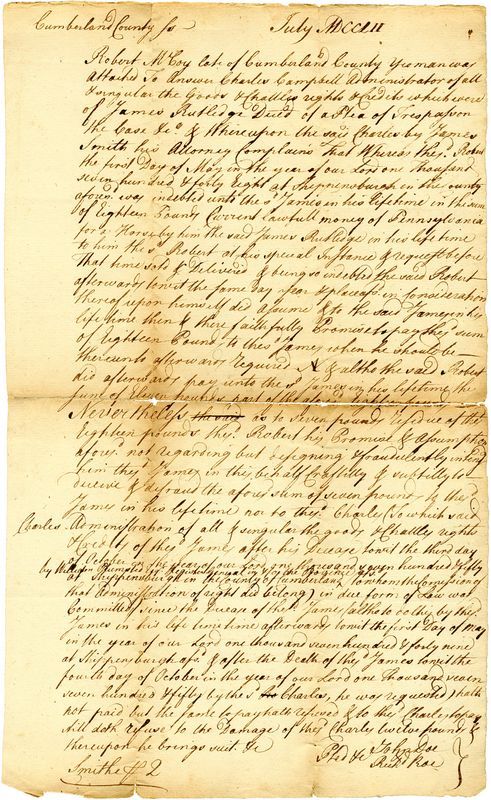 Cumberland County ss July MDCCLII
Robert McCoy late of Cumberland County Yeoman was
attached to answer Charles Campbell Administrator of all
& singular the Goods & Chattles rights & Credits which were
of James Rutledge Deced of a Plea of Trespass on
the Case &c & Whereupon the said Charles by James
Smith his Attorney Complains That Whereas the sd. Robert
the first Day of May in the year of our Lord one thousand
seven hundred & forty eight at Shippensburgh in the county
aforesd was indebted unto the sd James in his lifetime in the sum
of Eighteen Pounds Current lawfull money of Pennsylvania
for a Horse by him the said James Rutledge in his life time
to him the sd Robert at his special Instance & request before
that time sold & Delivered & being so indebted the said Robert
afterwards towit the same Day year & place in consideration
thereof upon himself did assume & to the said James in his
life time then & there faithfully Promise to pay the sd sum
of Eighteen Pounds to the sd James when he should be
thereunto afterwards required & altho the said Robert
did afterwards pay unto the sd James in his lifetime the
sum of pounds part of the
Nevertheless the said as to seven pounds residue of the
Eighteen pounds the sd. Robert his Promise & Assumption
aforesd. not regarding but designing & fraudulently intend
him the sd James in this behalf Craftily & subtilly to
deceive & defraud the afores sum of seven pounds to the sd
James in his life time nor to the sd Charles (to which said
Charles Administration of all & singular the goods & Chattles rights
& Credits of the sd James after his Decease towit the third day
of October in the year of our Lord one thousand seven hundred & fifty
by William
at Shippensburgh in the County of Cumberland to whom the Comission of
that administration of right did belong) in due form of law was
Committed since the Decease of the sd James) altho to do this by the sd
James in his life time time afterwards towit the first Day of May
in the year of our Lord one thousand seven hundred & forty nine
at Shippensburgh afs. & after the Death of the sd James towit the
fourth day of October in the year of our Lord one thousand seven
seven hundred & fifty by the sd Charles, he was requested) hath
not paid but the same to pay hath refused & to the sd Charles to pay
still doth refuse to the Damage of the sd Charles twelve pounds &
thereupon he brings suit &c
Pled &c John Doe
Richd Roe
Smith 2